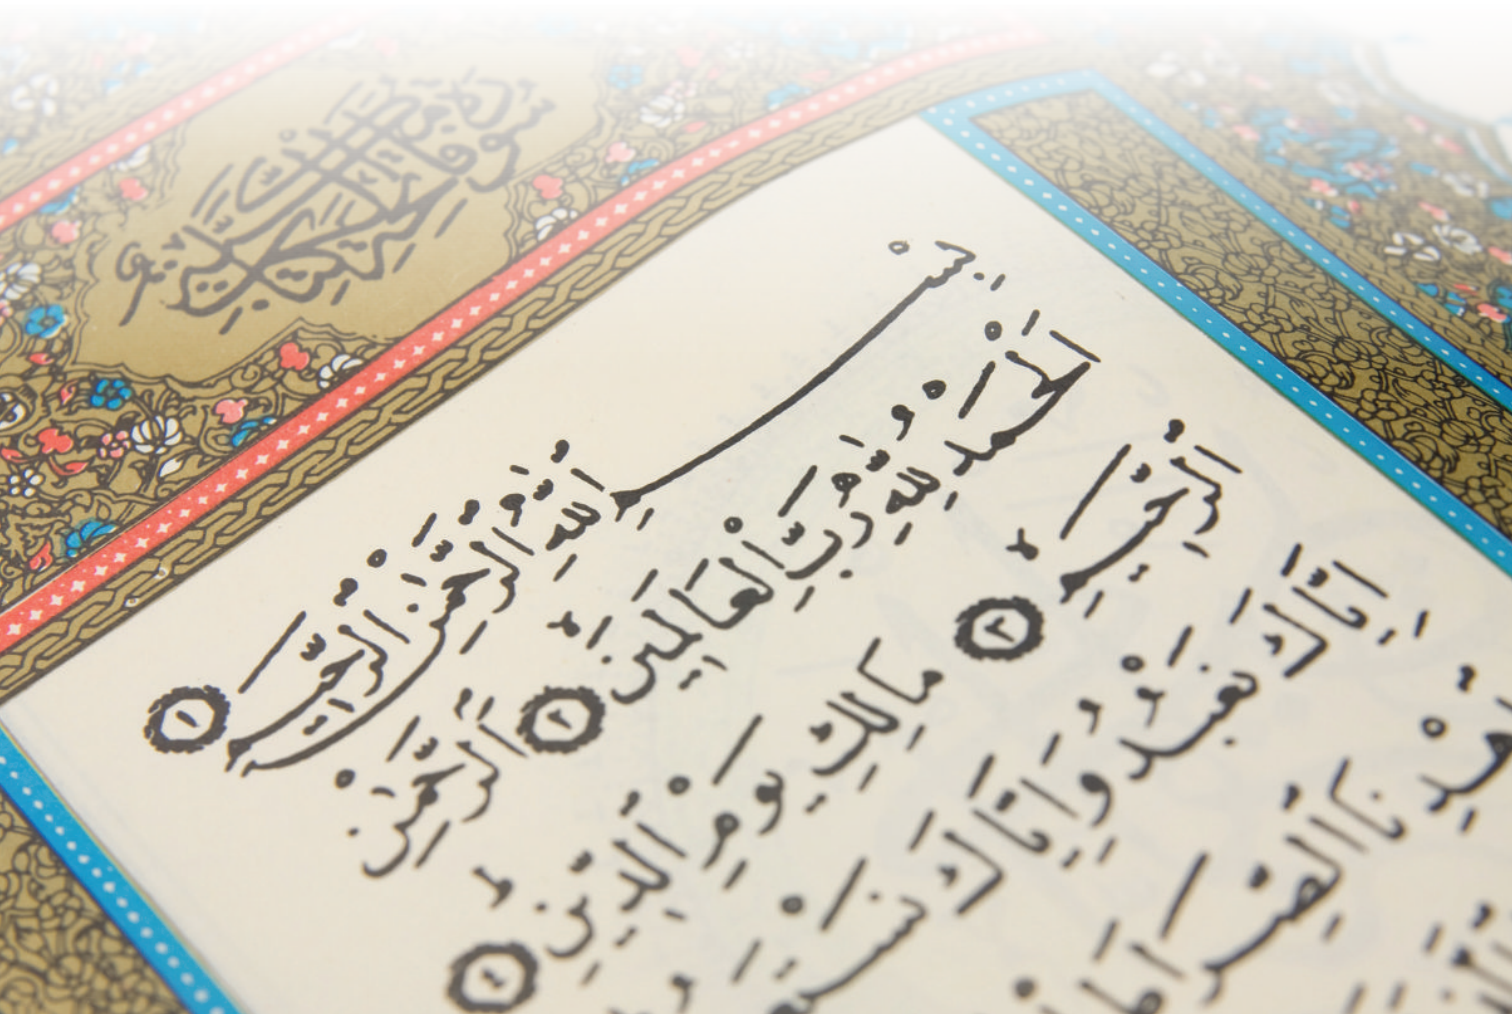 سُورَةُ فَاتِحَةِ
بِسْمِ اللهِ الرَّحْمٰنِ الرَّحِيمِ ١
اَلْحَمْدُ لِلّٰهِ رَبِّ الْعَالَمِينَ ٢ اَلرَّحْمٰنِ
الرَّحِيمِ ٣ مَالِكِ يَوْمِ الدِّينِ ٤
اِيَّاكَ نَعْبُدُ وَاِيَّاكَ نَسْتَع
اِهْدِنَا الصِّرَاطَ